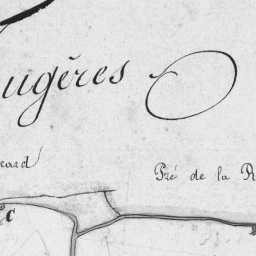 ugères
eard
Pré de la R
c